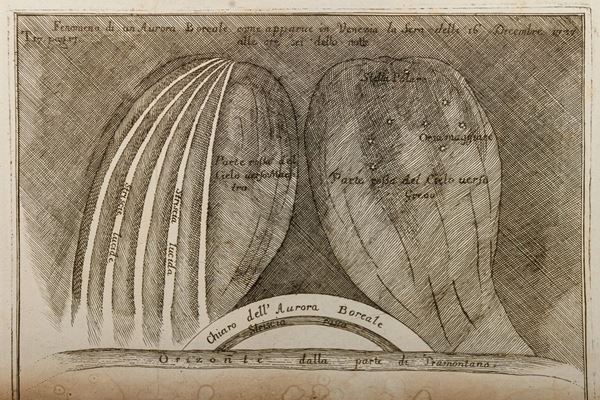 Fenomeno di un Aurora Boreale come apparue in Venezia la Sera delli 16 Decembre 1737
alle ore sei della notte
Stella Polare
Orsa maggiore
Parte rossa del
Cielo verso Maes
tro
Parte rossa del Cielo verso
Greco
Striscie lucide
Striscia lucida
Chiaro dell' Aurora Boreale
Striscia
Orizonte dalla parte di Tramontana.